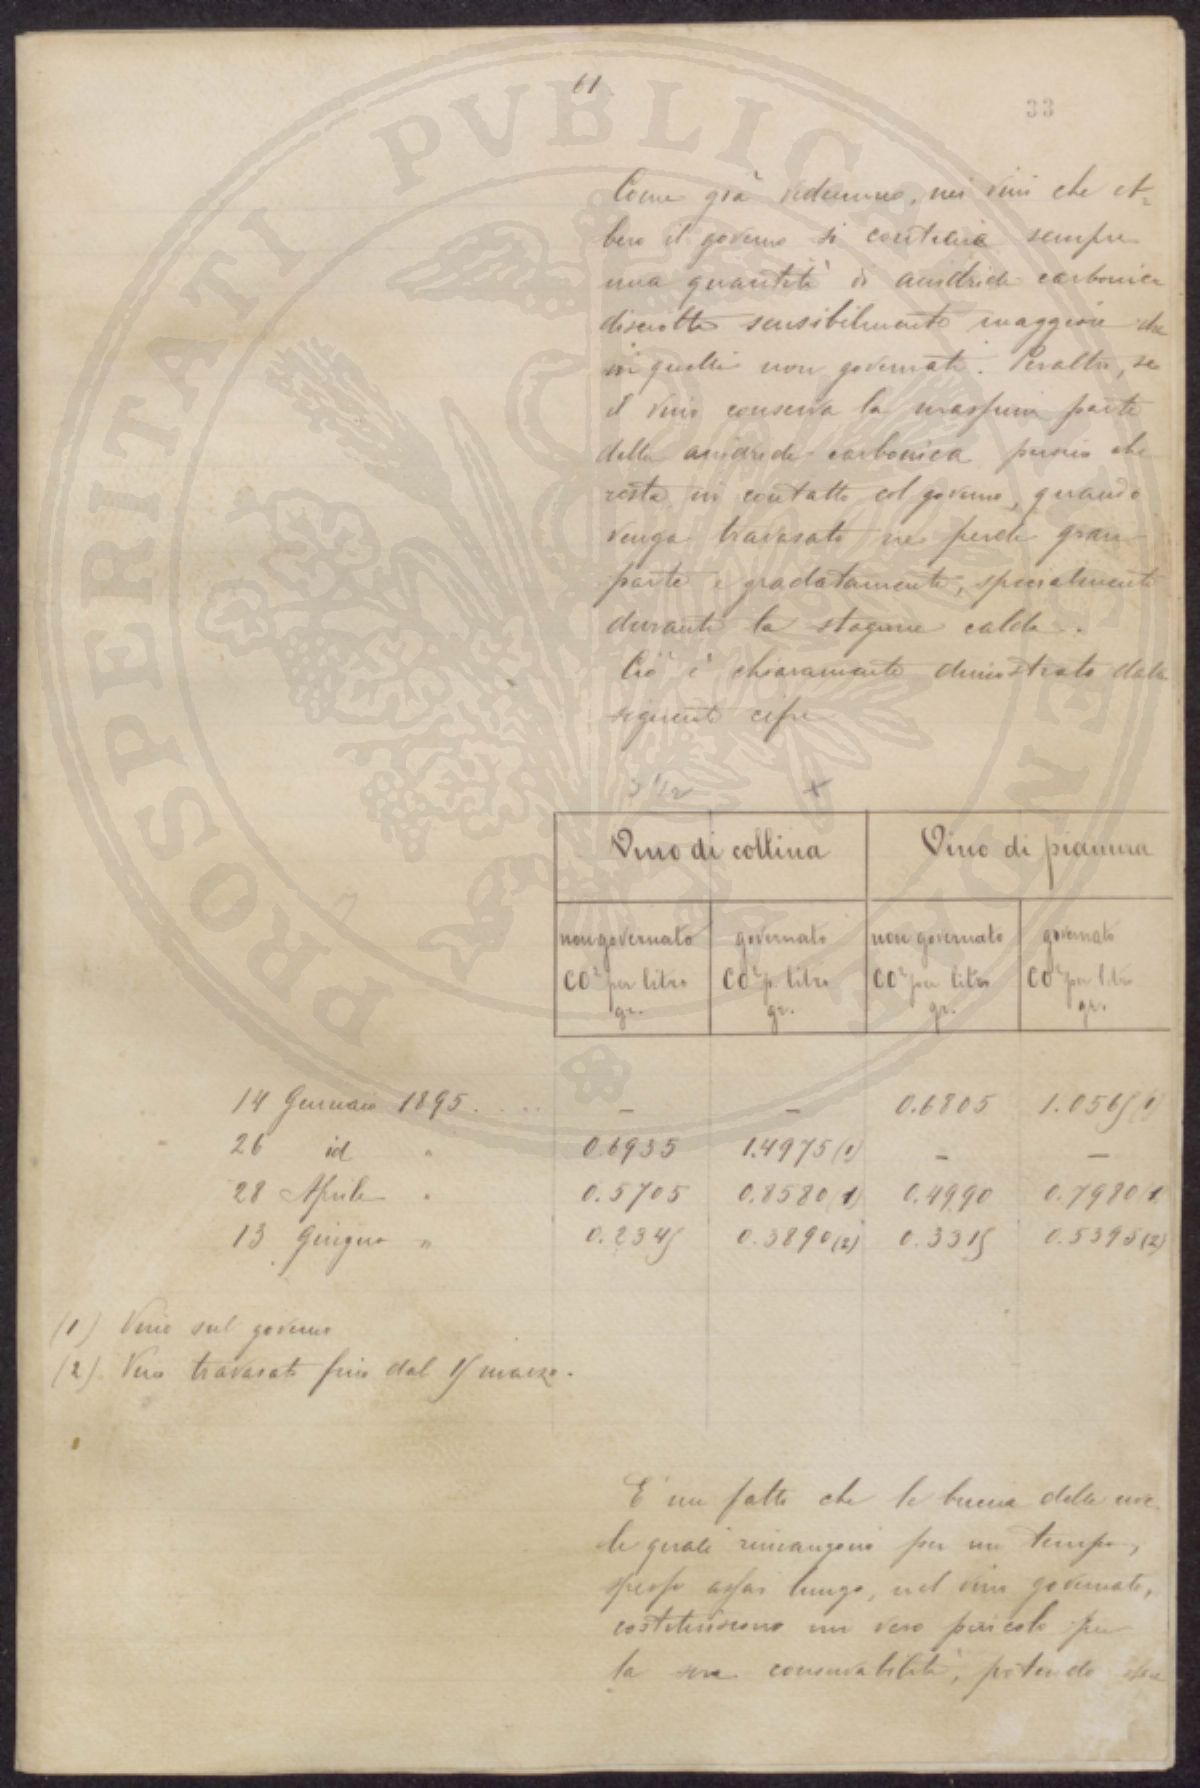 61
33
Come già vedemmo, nei vini che eb-
bero il governo si contiene sempre
una quantità di anidride carbonica
disciolta sensibilmente maggiore che
in quelli non governati. Peraltro, se
il vino conserva la massima parte
della anidride carbonica persino che
resta in contatto col governo, quando
venga travasato ne perde gran
parte e gradatamente, specialmente
durante la stagione calda.
Ciò è chiaramente dimostrato dalle
seguenti cifre
3 1/2 x
Vino di collina Vino di pianura
non governato governato non governato governato
CO² per litro CO² p. litro CO² per litro CO² per litro
gr. gr. gr. gr.
14 Gennaio 1895. . . . – – 0.6805 1.0565 (1)
26 id " 0.6935 1.4975 (1) – –
28 Aprile " 0.5705 0.8580 (1) 0.4990 0.7980 (1
13 Giugno " 0.2345 0.3890 (2) 0.3315 0.5395 (2)
(1) Vino sul governo
(2) Vino travasato fino dal 15 marzo.
È un fatto che le buccie delle uve
le quali rimangono per un tempo,
spesso assai lungo, nel vino governato,
costituiscono un vero pericolo per
la sua conservabilità, potendo esse
PROSPERITATI PVBLICAE